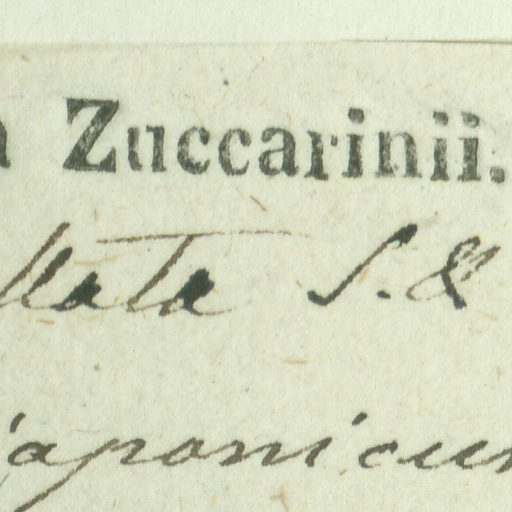 a Zuccarinii.
llata S. &
japonicum